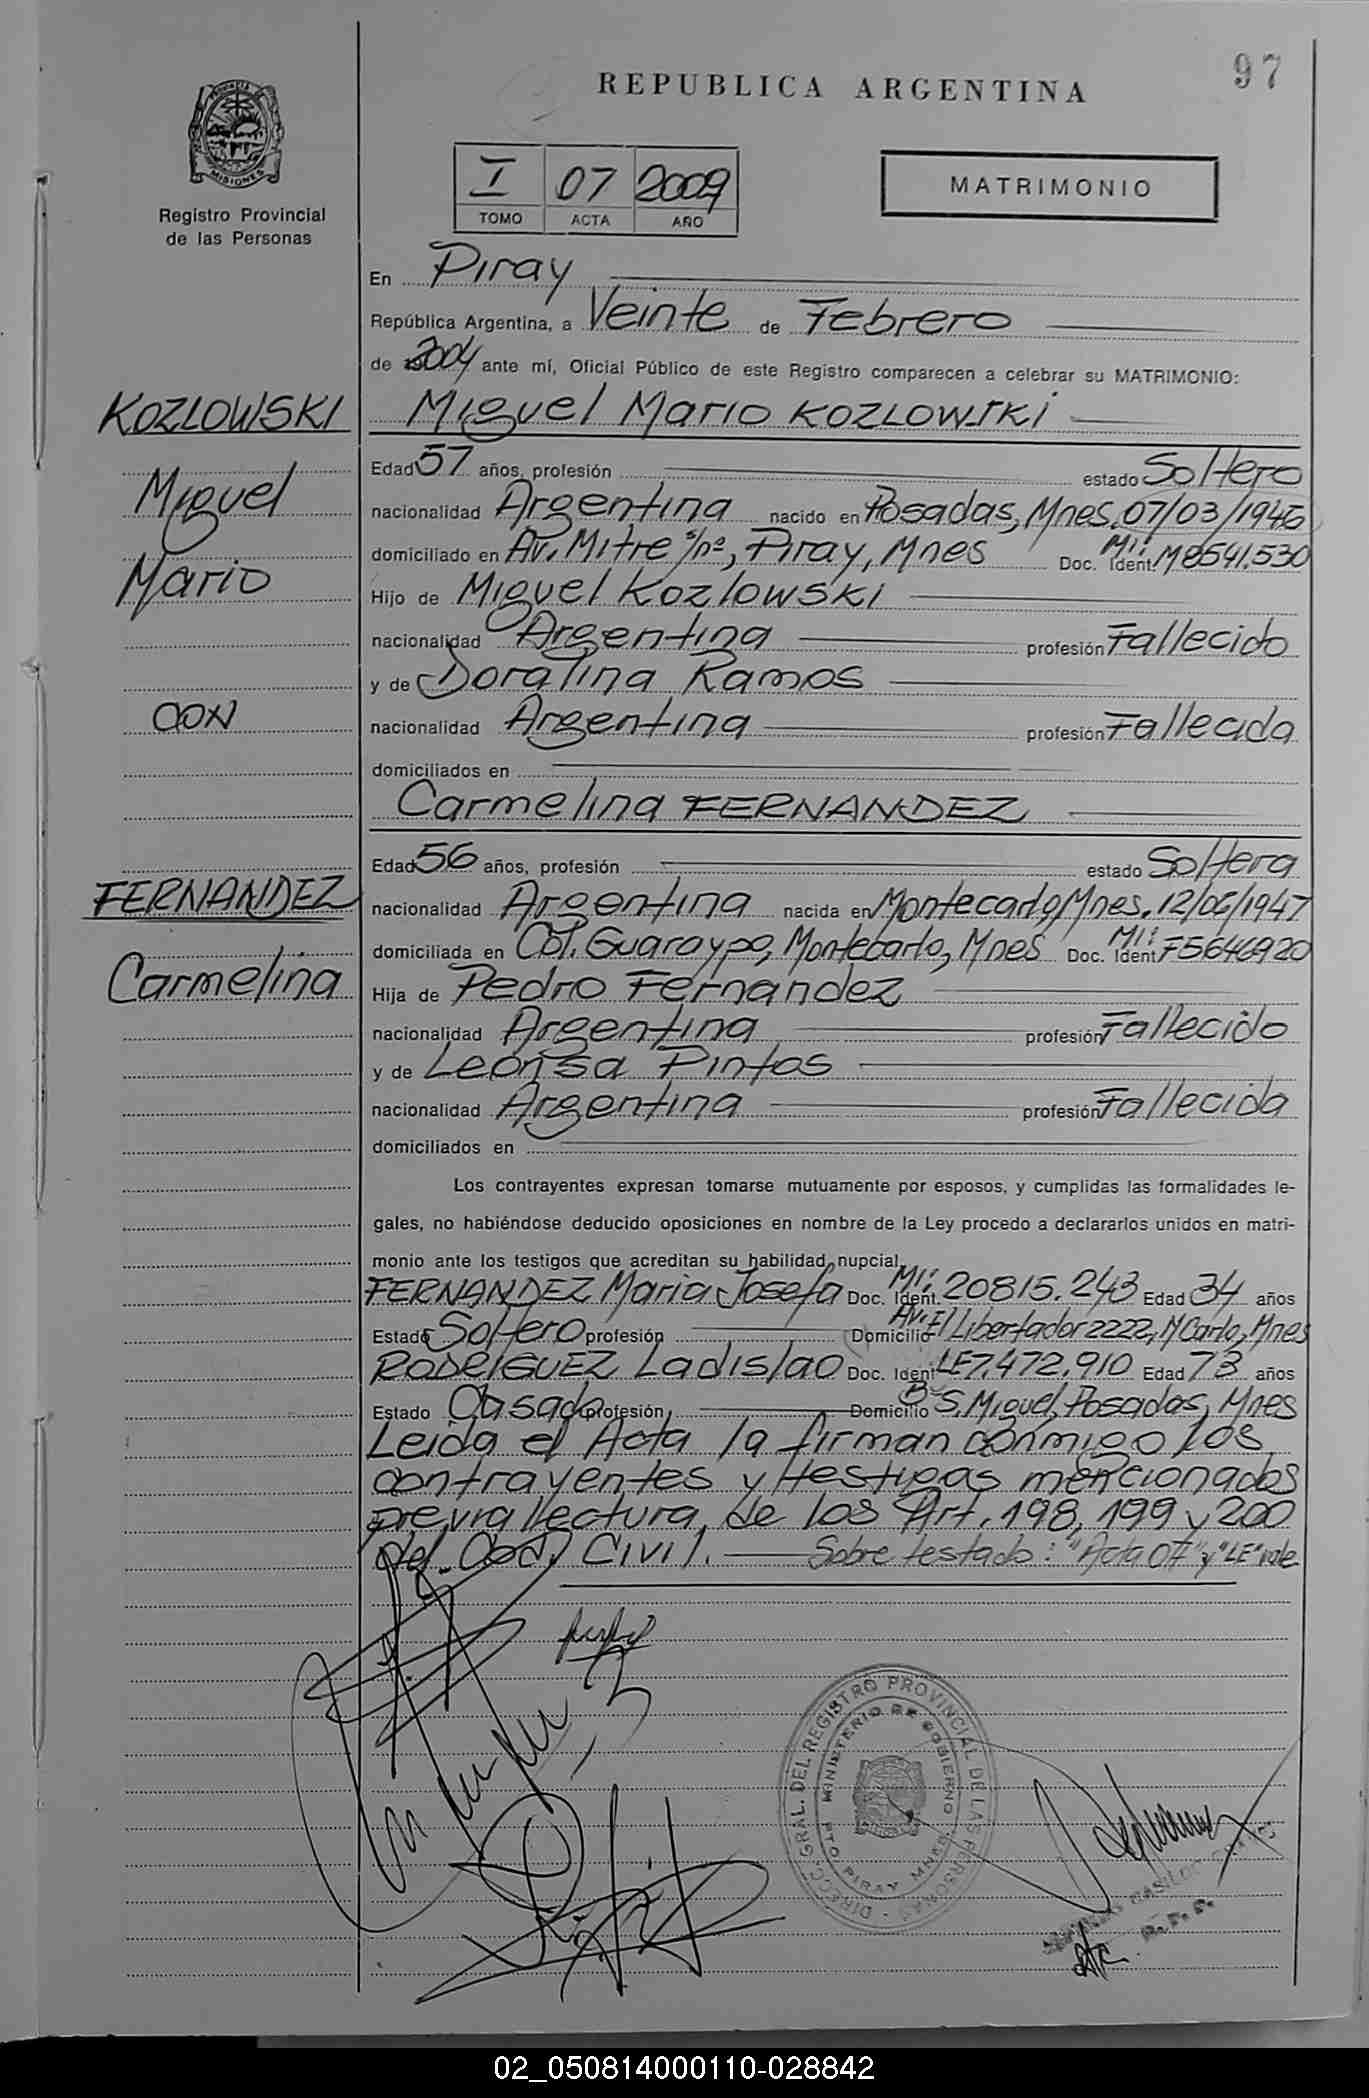 97
REPUBLICA ARGENTINA
MISIONES
Registro Provincial
de las Personas
I 07 2009
TOMO ACTA AÑO
MATRIMONIO
En Piray
República Argentina, a Veinte de Febrero
de 2004 ante mí, Oficial Público de este Registro comparecen a celebrar su MATRIMONIO:
KOZLOWSKI Miguel Mario KOZLOWSKI
Edad 57 años, profesión estado Soltero
Miguel nacionalidad Argentina nacido en Posadas, Mnes. 07/03/1946
domiciliado en Av. Mitre s/nº, Piray, Mnes Doc. Ident. MI: M8541.530
Mario Hijo de Miguel Kozlowski
nacionalidad Argentina profesión Fallecido
y de Doralina Ramos
CON nacionalidad Argentina profesión Fallecida
domiciliados en
Carmelina FERNANDEZ
Edad 56 años, profesión estado Soltera
FERNANDEZ nacionalidad Argentina nacida en Montecarlo, Mnes. 12/06/1947
domiciliada en Col. Guaraypo, Montecarlo, Mnes Doc. Ident MI: F5646920
Carmelina Hija de Pedro Fernandez
nacionalidad Argentina profesión Fallecido
y de Leonsa Pintos
nacionalidad Argentina profesión Fallecida
domiciliados en
Los contrayentes expresan tomarse mutuamente por esposos, y cumplidas las formalidades le-
gales, no habiéndose deducido oposiciones en nombre de la Ley procedo a declararlos unidos en matri-
monio ante los testigos que acreditan su habilidad nupcial,
FERNANDEZ Maria Josefa Doc. Ident. MI: 20815.243 Edad 34 años
Estado Soltero profesión Domicilio Av. El Libertador 2222, M Carlo, Mnes
RODRIGUEZ Ladislao Doc. Ident LE7.472.910 Edad 73 años
Estado Casado profesión Domicilio Bº S. Miguel, Posadas, Mnes
Leida el Acta la firman conmigo los
contrayentes y testigos mencionados
previa lectura de los Art. 198, 199 y 200
del Cod. Civil. Sobre testado: "Acta 07" y "LE" vale
DIRECC. GRAL. DEL REGISTRO PROVINCIAL DE LAS PERSONAS
MINISTERIO DE GOBIERNO
PTO PIRAY MNES
02_050814000110-028842